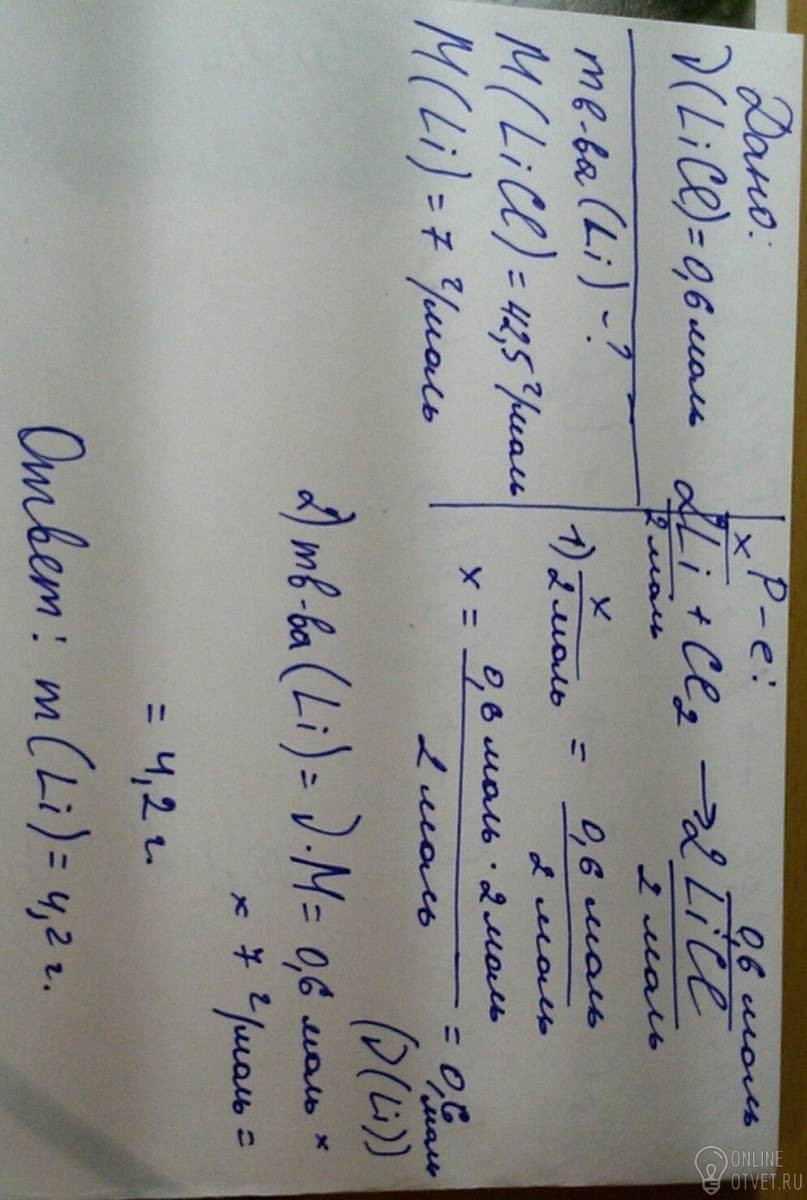 Дано:
ν(LiCl)=0,6 моль
mв-ва(Li)-?
M(LiCl)=42,5 г/моль
M(Li)=7 г/моль
Р-е:
x 0,6 моль
2Li + Cl₂ → 2LiCl
2 моль 2 моль
1) x/2 моль = 0,6 моль/2 моль
x = 0,6 моль · 2 моль/2 моль = 0,6 моль
(ν(Li))
2) mв-ва(Li)=ν·M=0,6 моль ×
× 7 г/моль =
= 4,2 г.
Ответ: m(Li)=4,2 г.
ONLINE
OTVET.RU